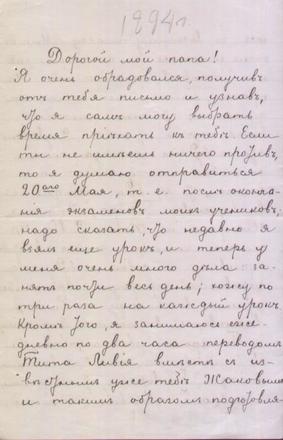 1894 г.
Дорогой мой папа!
Я очень обрадовался, получивъ
отъ тебя письмо и узнавъ,
что я самъ могу выбрать
время пріѣхать къ тебѣ. Если
ты не имѣешь ничего противъ,
то я думаю отправиться
20-аго Мая, т. е. послѣ оконча-
нія экзаменовъ моихъ учениковъ;
надо сказать, что недавно я
взялъ еще урокъ, и теперь у
меня очень много дѣла за-
нятъ почти весь день; хожу по
три раза на каждый урокъ
Кромѣ того, я занимаюсь еже
дневно по два часа переводомъ
Тита Ливія вмѣстѣ съ из-
вѣстнымъ уже тебѣ Жаковымъ
и такимъ образомъ подготовля-